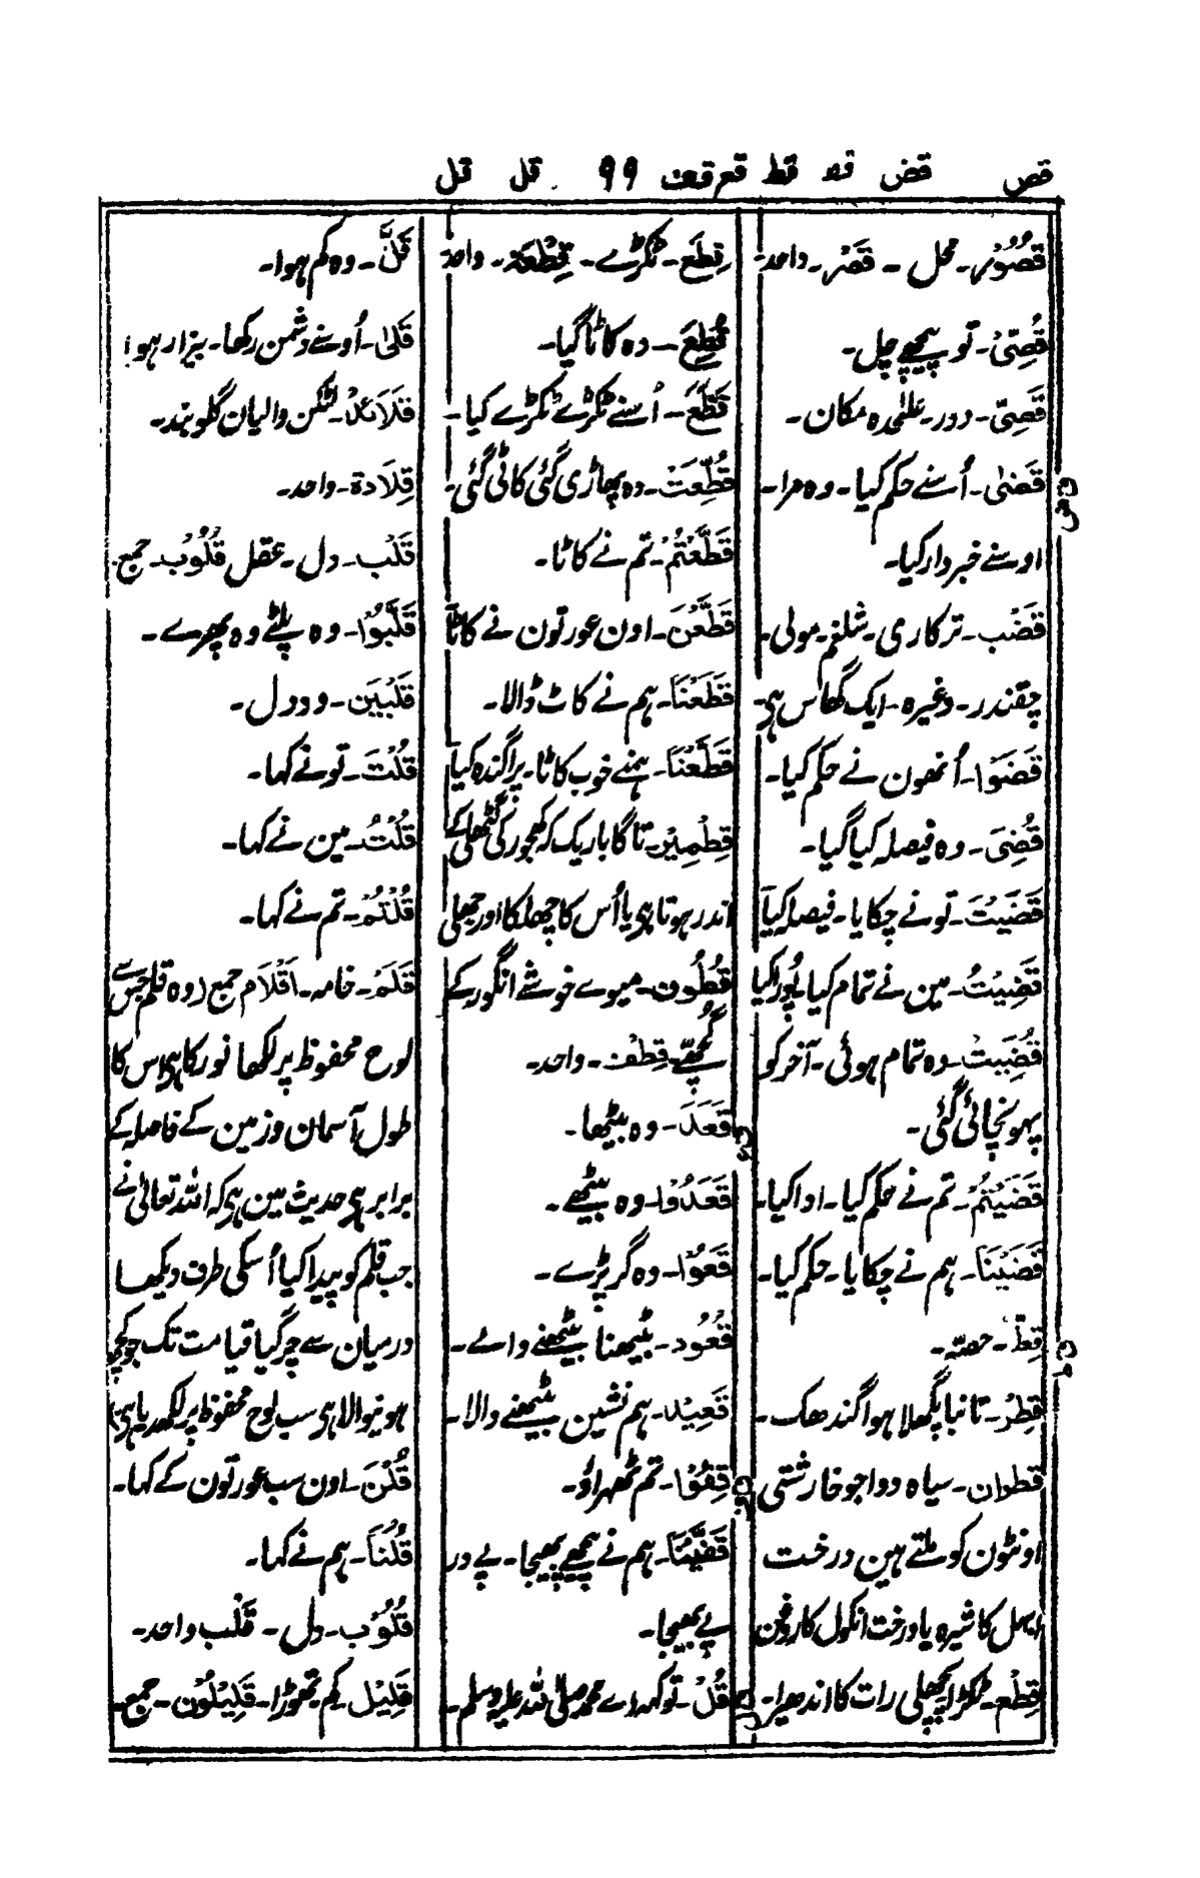 قص قض قط قط قع قف ۹۹ قل قل
قُصُوْر۔ محل ۔ قَصْر۔ واحد۔
قُصِّیْ۔ تو پیچھے چل۔
قَصِیّ۔ دور۔ علٰحدہ مکان۔
قض
قَضٰی۔ اُسنے حکم کیا۔ وہ مرا۔
اوسنے خبردار کیا۔
قَضْب۔ ترکاری۔ شلغم۔ مولی۔
چقندر۔ وغیرہ۔ ایک گھاس ہی۔
قَضَوْا۔ اُنھون نے حکم کیا۔
قُضِیَ۔ وہ فیصلہ کیا گیا۔
قَضَیْتَ۔ تونے چکایا۔ فیصلہ کیا
قَضَیْتُ۔ مین نے تمام کیا۔ پُورا کیا
قُضِیَتْ۔ وہ تمام ہوئی۔ آخر کو
پہونچائی گئی۔
قَضَیْتُمْ۔ تم نے حکم کیا۔ ادا کیا۔
قَضَیْنَا۔ ہم نے چکایا۔ حکم کیا۔
قط
قِطّ۔ حصّہ۔
قِطْر۔ تانبا پگھلا ہوا گندھک۔
قطران۔ سیاہ دوا جو خارشتی
اونٹون کو ملتے ہین درخت
ابہل کا شیرہ یا درخت انکول کا روغن
قِطْع۔ ٹکڑا پچھلی رات کا اندھیرا۔
قِطَع۔ ٹکڑے۔ قِطْعَة۔ واحد
قُطِعَ۔ وہ کاٹا گیا۔
قَطَّعَ۔ اُسنے ٹکڑے ٹکڑے کیا۔
قُطِّعَتْ۔ وہ پھاڑی گئی کاٹی گئی۔
قَطَّعْتُمْ۔ تم نے کاٹا۔
قَطَّعْنَ۔ اون عورتون نے کاٹا
قَطَعْنَا۔ ہم نے کاٹ ڈالا۔
قَطَّعْنَا۔ ہمنے خوب کاٹا۔ پراگندہ کیا
قِطْمِیْر۔ تاگا باریک کہ کھجور کی گٹھلی کے
اندر ہوتا ہی یا اُس کا چھلکا اور جھلی
قُطُوْن۔ میوے خوشے انگور کے
گُچھے۔ قِطْف۔ واحد۔
قع
قَعَدَ۔ وہ بیٹھا۔
قَعَدُوْا۔ وہ بیٹھے۔
قَعَوْا۔ وہ گر پڑے۔
قُعُوْد۔ بیٹھنا بیٹھنے والے۔
قَعِیْد۔ ہم نشین بیٹھنے والا۔
قف
قِفُوْا۔ تم ٹھہراؤ۔
قَفَّیْنَا۔ ہم نے پیچھے بھیجا۔ پے در
پے بھیجا۔
قل
قُلْ۔ تو کہہ اے محمد صلی اللہ علیہ وسلم۔
قَلَّ۔ وہ کم ہوا۔
قَلٰی۔ اُوسنے دشمن رکھا۔ بیزار ہوا
قَلَائد۔ لٹکن والیان گلوبند۔
قِلَادة۔ واحد۔
قَلْب۔ دل۔ عقل قُلُوْب۔ جمع۔
قَلَّبُوْا۔ وہ پلٹے وہ پھرے۔
قَلْبَیْن۔ دو دل۔
قُلْتَ۔ تونے کہا۔
قُلْتُ۔ مین نے کہا۔
قُلْتُمْ۔ تم نے کہا۔
قَلَم۔ خامہ۔ اَقْلَام جمع (وہ قلم جس سے
لوح محفوظ پر لکھا نور کا ہی اس کا
طول آسمان و زمین کے فاصلہ کے
برابر ہی حدیث مین ہی کہ اللہ تعالیٰ نے
جب قلم کو پیدا کیا اُسکی طرف دیکھا
درمیان سے چر گیا قیامت تک جو کچھ
ہونیوالا ہی سب لوح محفوظ پر لکھدیا ہی)
قُلْنَ۔ اون سب عورتون کے کہا۔
قُلْنَا۔ ہم نے کہا۔
قُلُوْب۔ دل۔ قَلْب واحد۔
قَلِیْل۔ کم۔ تھوڑا۔ قَلِیْلُوْن۔ جمع۔